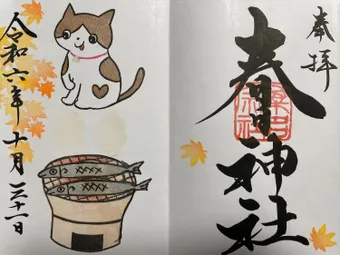 奉拝
春日神社
令和六年十月三十一日